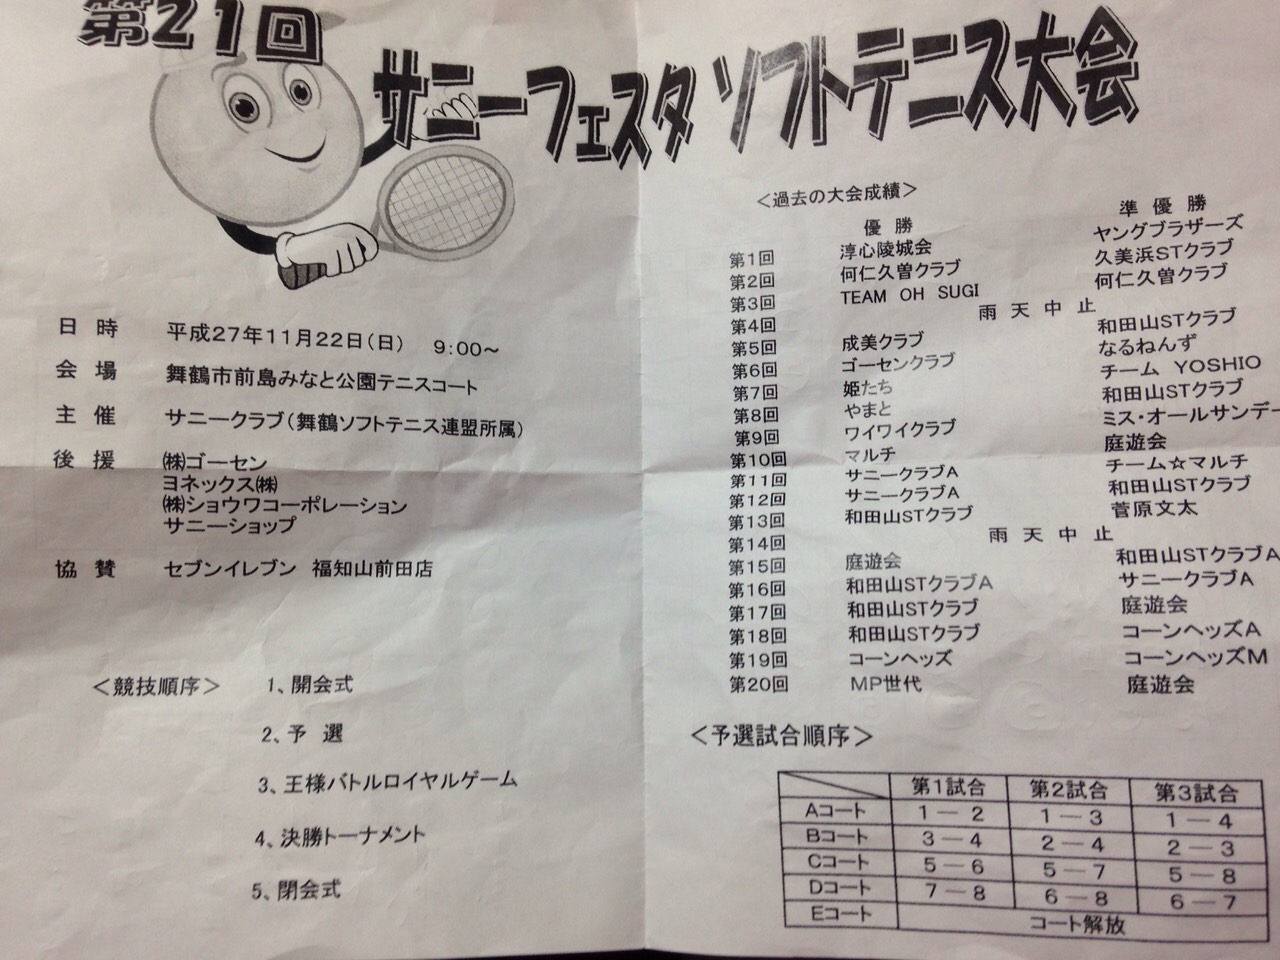 第21回
サニーフェスタ ソフトテニス大会
日 時 平成27年11月22日(日) 9:00～
会 場 舞鶴市前島みなと公園テニスコート
主 催 サニークラブ(舞鶴ソフトテニス連盟所属)
後 援 ㈱ゴーセン
ヨネックス㈱
㈱ショウワコーポレーション
サニーショップ
協 賛 セブンイレブン 福知山前田店
＜競技順序＞ 1、開会式
2、予 選
3、王様バトルロイヤルゲーム
4、決勝トーナメント
5、閉会式
＜過去の大会成績＞
優 勝 準 優 勝
第1回 淳心陵城会 ヤングブラザーズ
第2回 何仁久曽クラブ 久美浜STクラブ
第3回 TEAM OH SUGI 何仁久曽クラブ
第4回 雨 天 中 止
第5回 成美クラブ 和田山STクラブ
第6回 ゴーセンクラブ なるねんず
第7回 姫たち チーム YOSHIO
第8回 やまと 和田山STクラブ
第9回 ワイワイクラブ ミス・オールサンデー
第10回 マルチ 庭遊会
第11回 サニークラブA チーム☆マルチ
第12回 サニークラブA 和田山STクラブ
第13回 和田山STクラブ 菅原文太
第14回 雨 天 中 止
第15回 庭遊会 和田山STクラブA
第16回 和田山STクラブA サニークラブA
第17回 和田山STクラブ 庭遊会
第18回 和田山STクラブ コーンヘッズA
第19回 コーンヘッズ コーンヘッズM
第20回 MP世代 庭遊会
＜予選試合順序＞
第1試合 第2試合 第3試合
Aコート 1 ― 2 1 ― 3 1 ― 4
Bコート 3 ― 4 2 ― 4 2 ― 3
Cコート 5 ― 6 5 ― 7 5 ― 8
Dコート 7 ― 8 6 ― 8 6 ― 7
Eコート コート解放